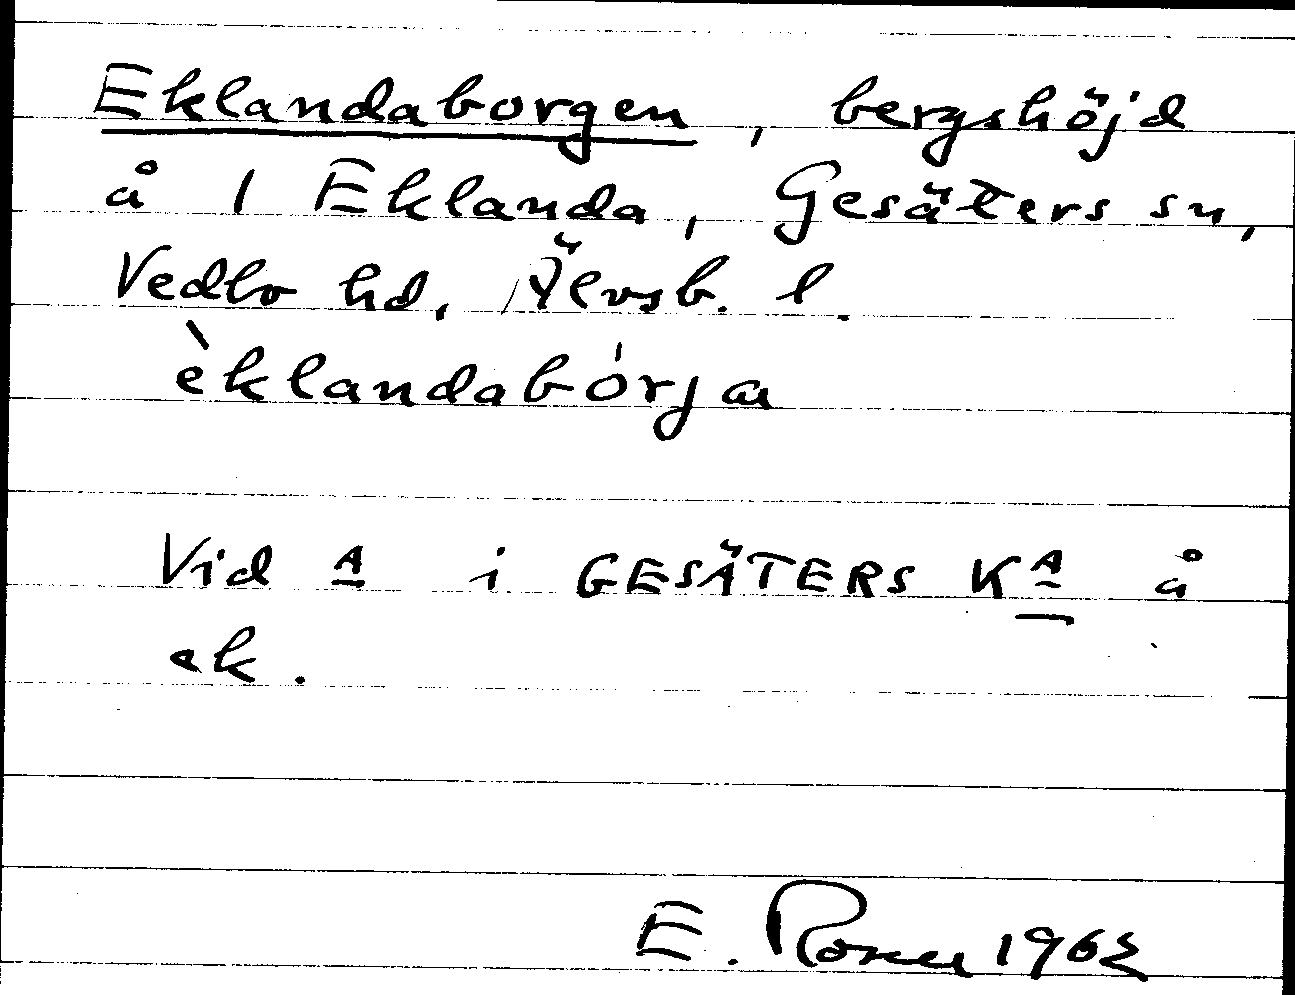 Eklandaborgen, bergshöjd
å 1 Eklanda, Gesäters sn,
Vedbo hd, Älvsb. l.
èklandabórja
Vid A i GESÄTERS KA å
ek.
E. Rosell 1962